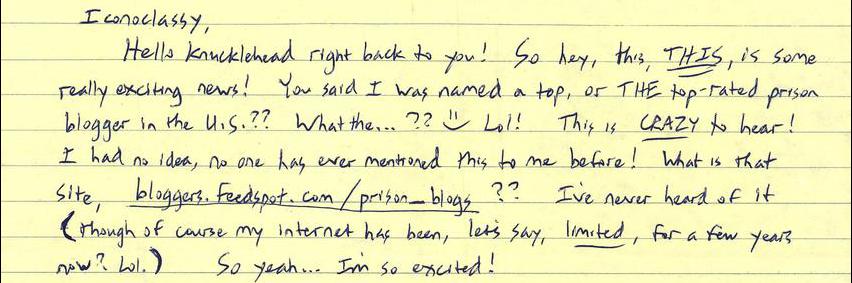 Iconoclassy,
Hello knucklehead right back to you! So hey, this, THIS, is some
really exciting news! You said I was named a top, or THE top-rated prison
blogger in the U.S.?? What the... ?? Lol! This is CRAZY to hear!
I had no idea, no one has ever mentioned this to me before! What is that
site, bloggers.feedspot.com/prison_blogs ?? I've never heard of it
(though of course my internet has been, let's say, limited, for a few years
now? Lol.) So yeah... I'm so excited!